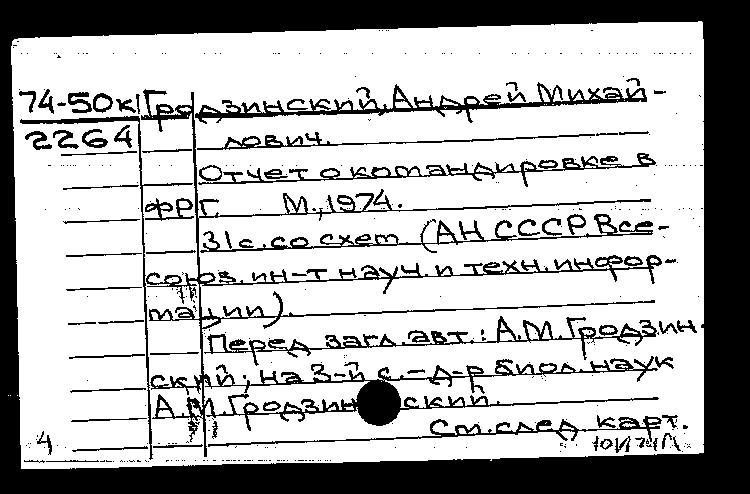 74-50к Гродзинский, Андрей Михай-
2264 лович.
Отчет о командировке в
ФРГ. М., 1974.
31 с. со схем. (АН СССР. Все-
союз. ин-т науч. и техн. инфор-
мации).
Перед загл. авт.: А.М. Гродзин-
ский; на 3-й с. – д-р биол. наук
А.М. Гродзинский.
См. след. карт.
4